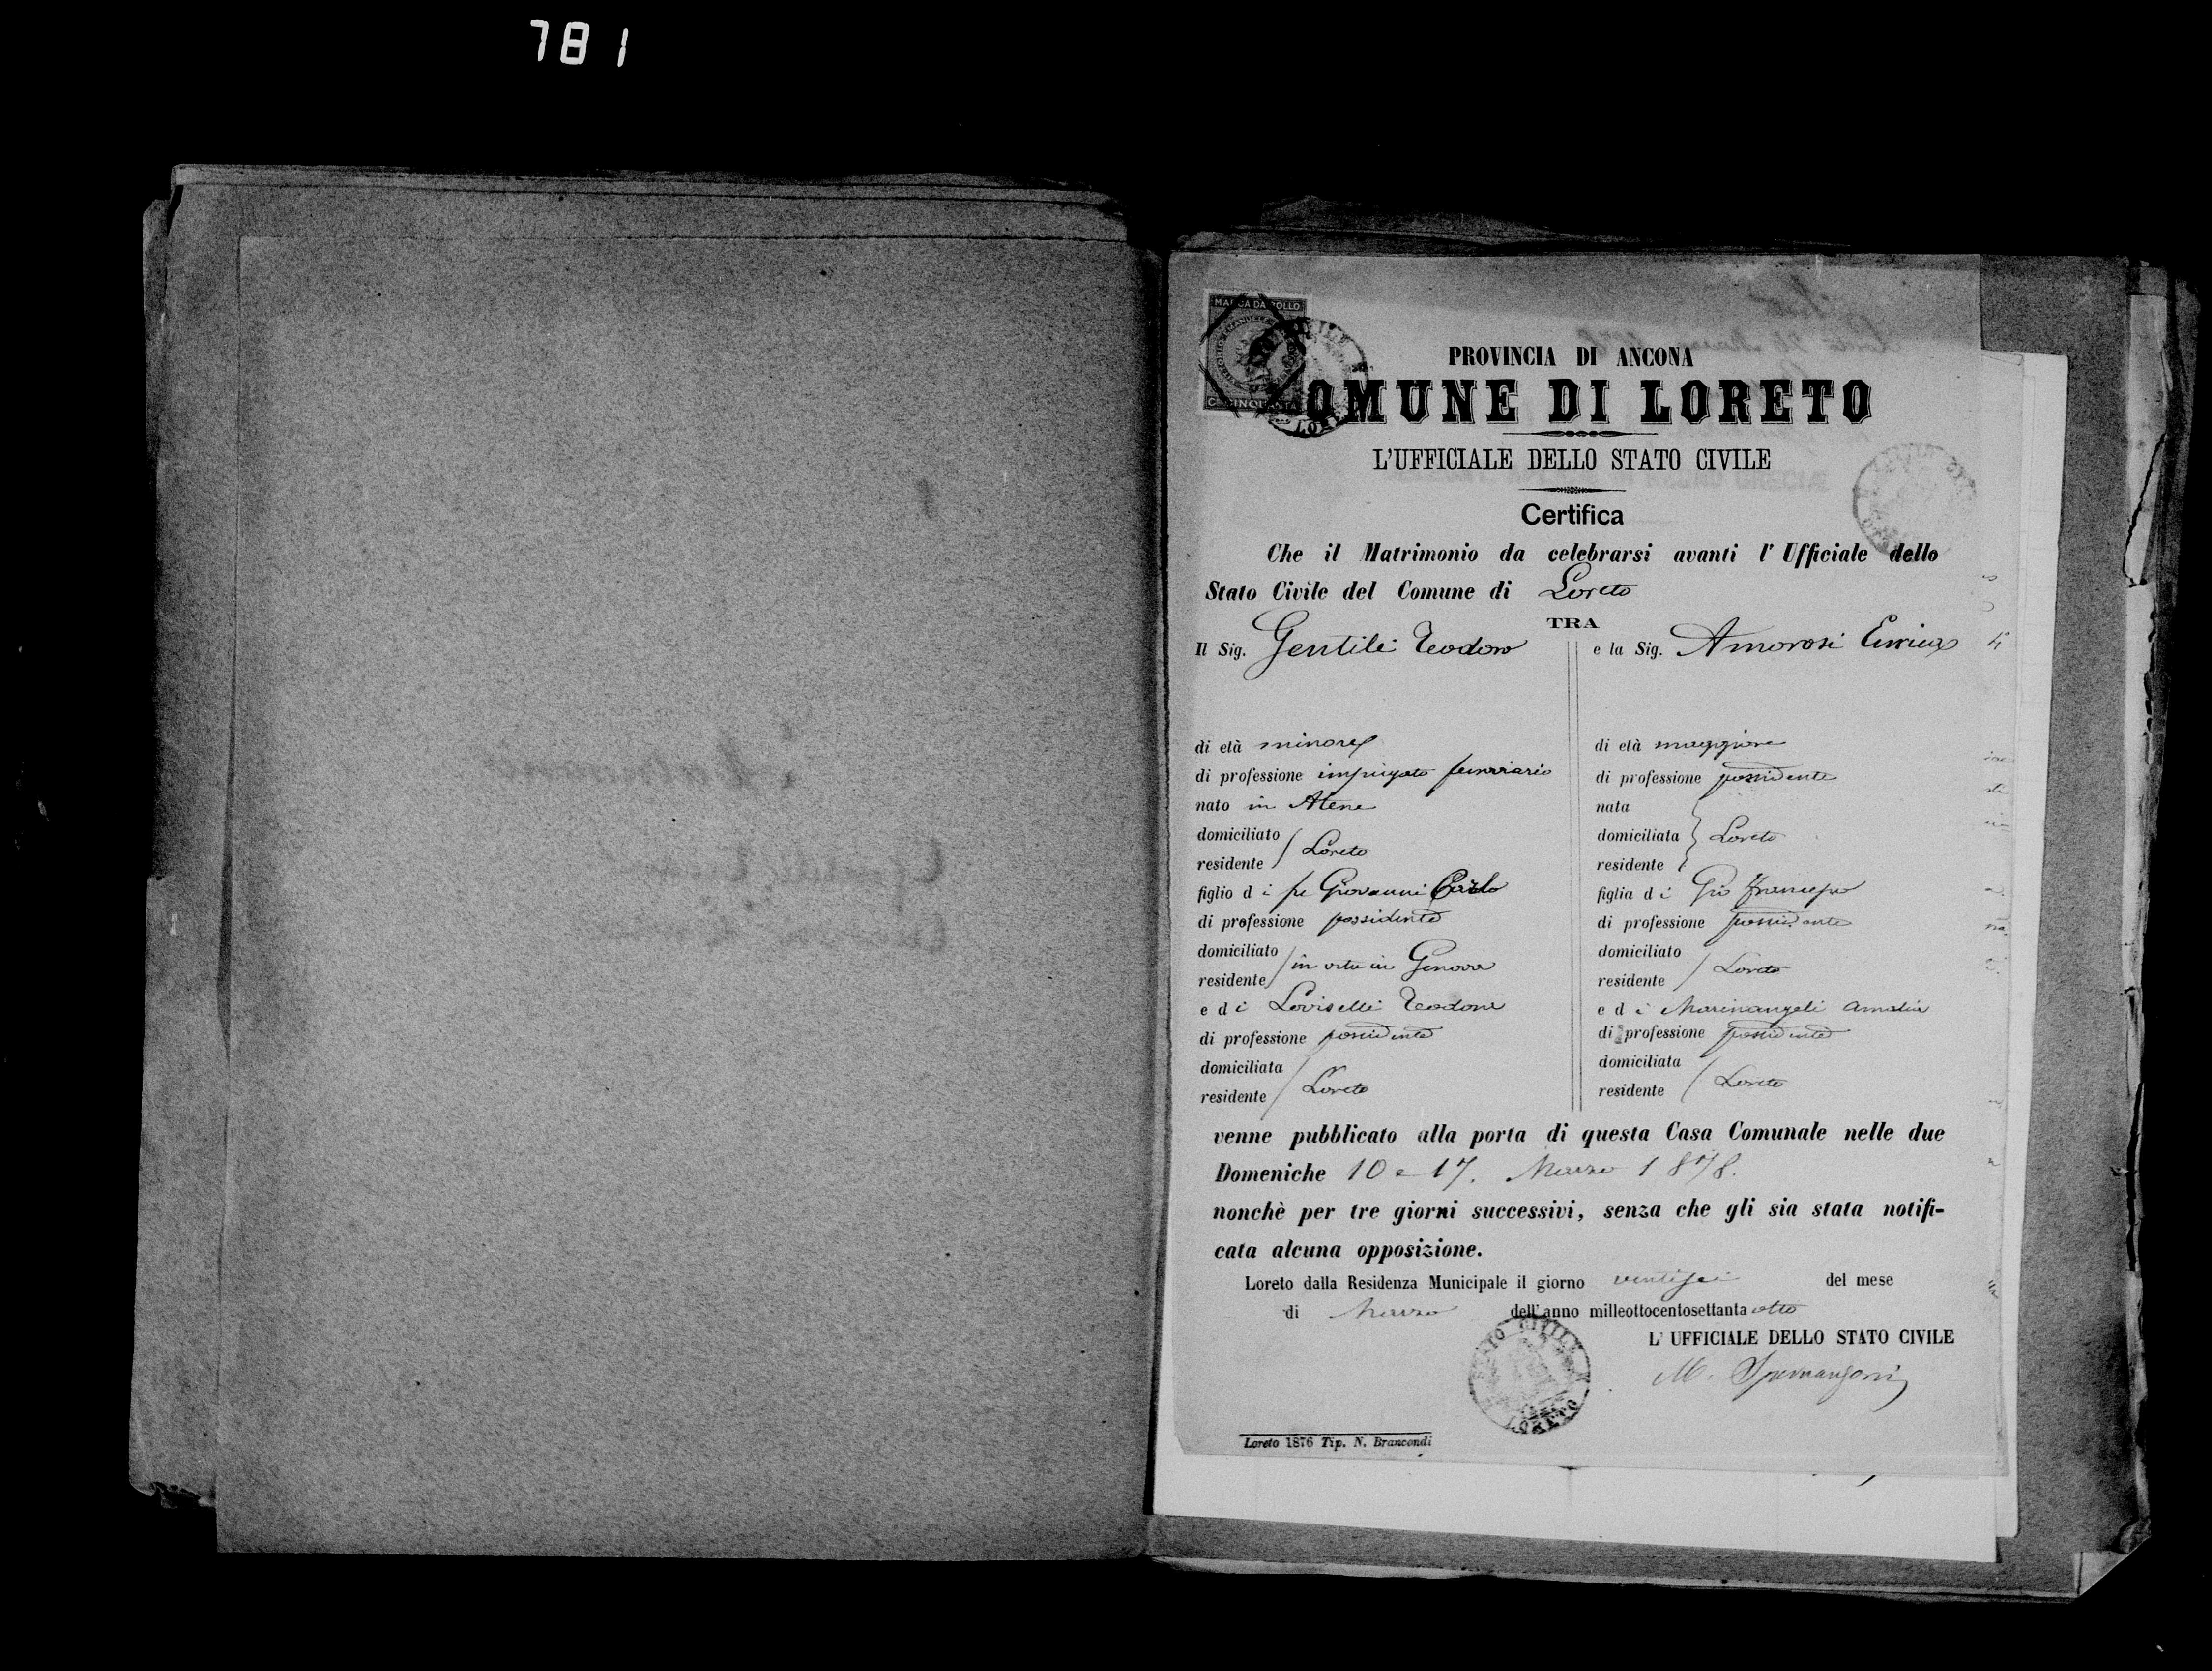 781
MARCA DA BOLLO
PROVINCIA DI ANCONA
COMUNE DI LORETO
L'UFFICIALE DELLO STATO CIVILE
Certifica
Che il Matrimonio da celebrarsi avanti l' Ufficiale dello
Stato Civile del Comune di Loreto
TRA
Il Sig. Gentili Teodoro
di età minore
di professione impiegato ferroviario
nato in Atene
domiciliato
residente Loreto
figlio di fu Giovanni Carlo
di professione possidente
domiciliato
residente in vita in Genova
e di Loviselli Teodora
di professione possidente
domiciliata
residente Loreto
e la Sig. Amorosi Enrica
di età maggiore
di professione possidente
nata
domiciliata Loreto
residente
figlia di Gio Francesco
di professione possidente
domiciliato
residente Loreto
e di Marinangeli Amalia
di professione possidente
domiciliata
residente Loreto
venne pubblicato alla porta di questa Casa Comunale nelle due
Domeniche 10 e 17. Marzo 1878.
nonchè per tre giorni successivi, senza che gli sia stata notifi-
cata alcuna opposizione.
Loreto dalla Residenza Municipale il giorno ventisei del mese
di Marzo dell' anno milleottocentosettanta otto
L' UFFICIALE DELLO STATO CIVILE
M.
STATO CIVILE
LORETO
Loreto 1876 Tip. N. Brancondi